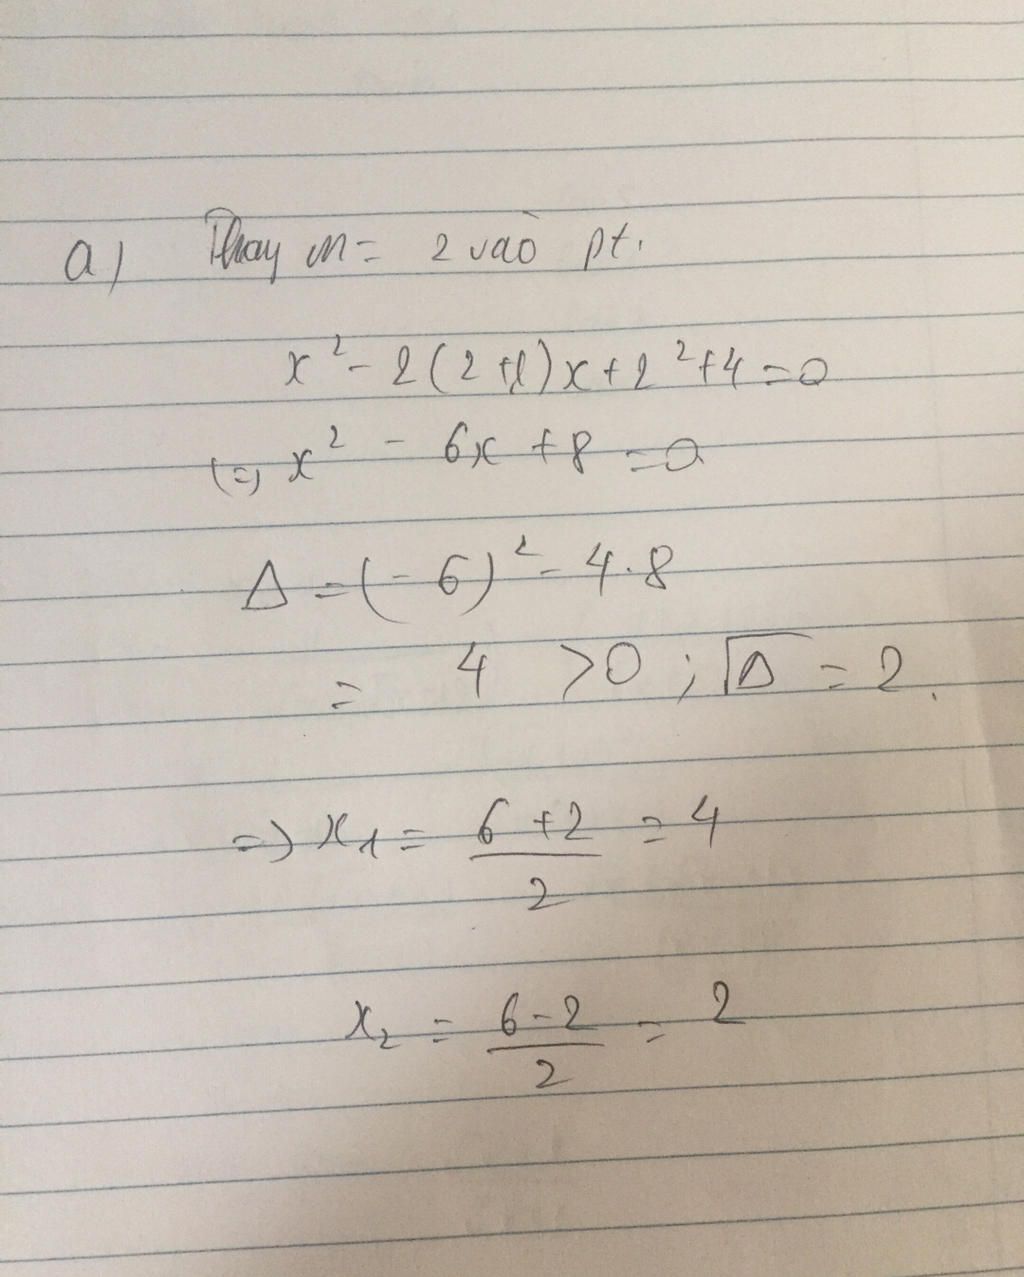 a) Thay m = 2 vào pt.
x² - 2(2+1)x + 2² + 4 = 0
(=) x² - 6x + 8 = 0
Δ = (-6)² - 4.8
= 4 > 0 ; √Δ = 2.
=) x₁ = (6+2)/2 = 4
x₂ = (6-2)/2 = 2